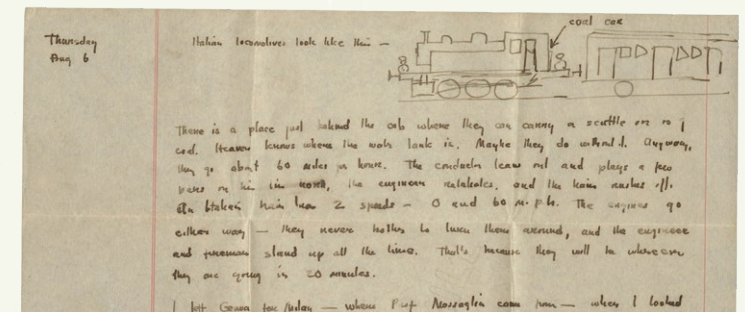 coal car
Thursday
Aug 6
Italian locomotives look like this —
There is a place just behind the cab where they can carry a scuttle or so of
coal. Heaven knows where the water tank is. Maybe they do without. Anyway,
they go about 60 miles per hour. The conductor leans out and plays a few
bars on his tin horn, the engineer and the train rushes off.
An Italian train has 2 speeds — 0 and 60 m.p.h. The engines go
either way — they never bother to turn them around, and the engineer
and fireman stand up all the time. That's because they will be wherever
they are going in 20 minutes.
I left Genoa for Milan — where Prof Mossaglia came from — when I looked